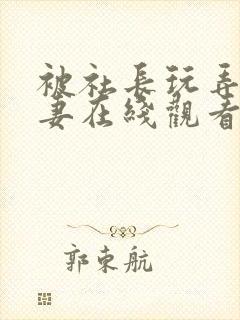 被社長玩弄
妻在綫觀看
郭東航